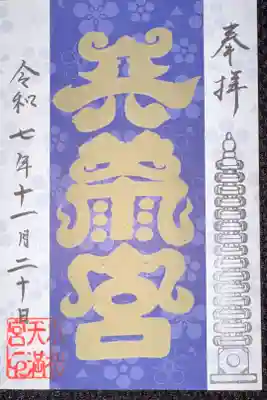 奉拝
天満宮
令和七年十一月二十日
天満
宮